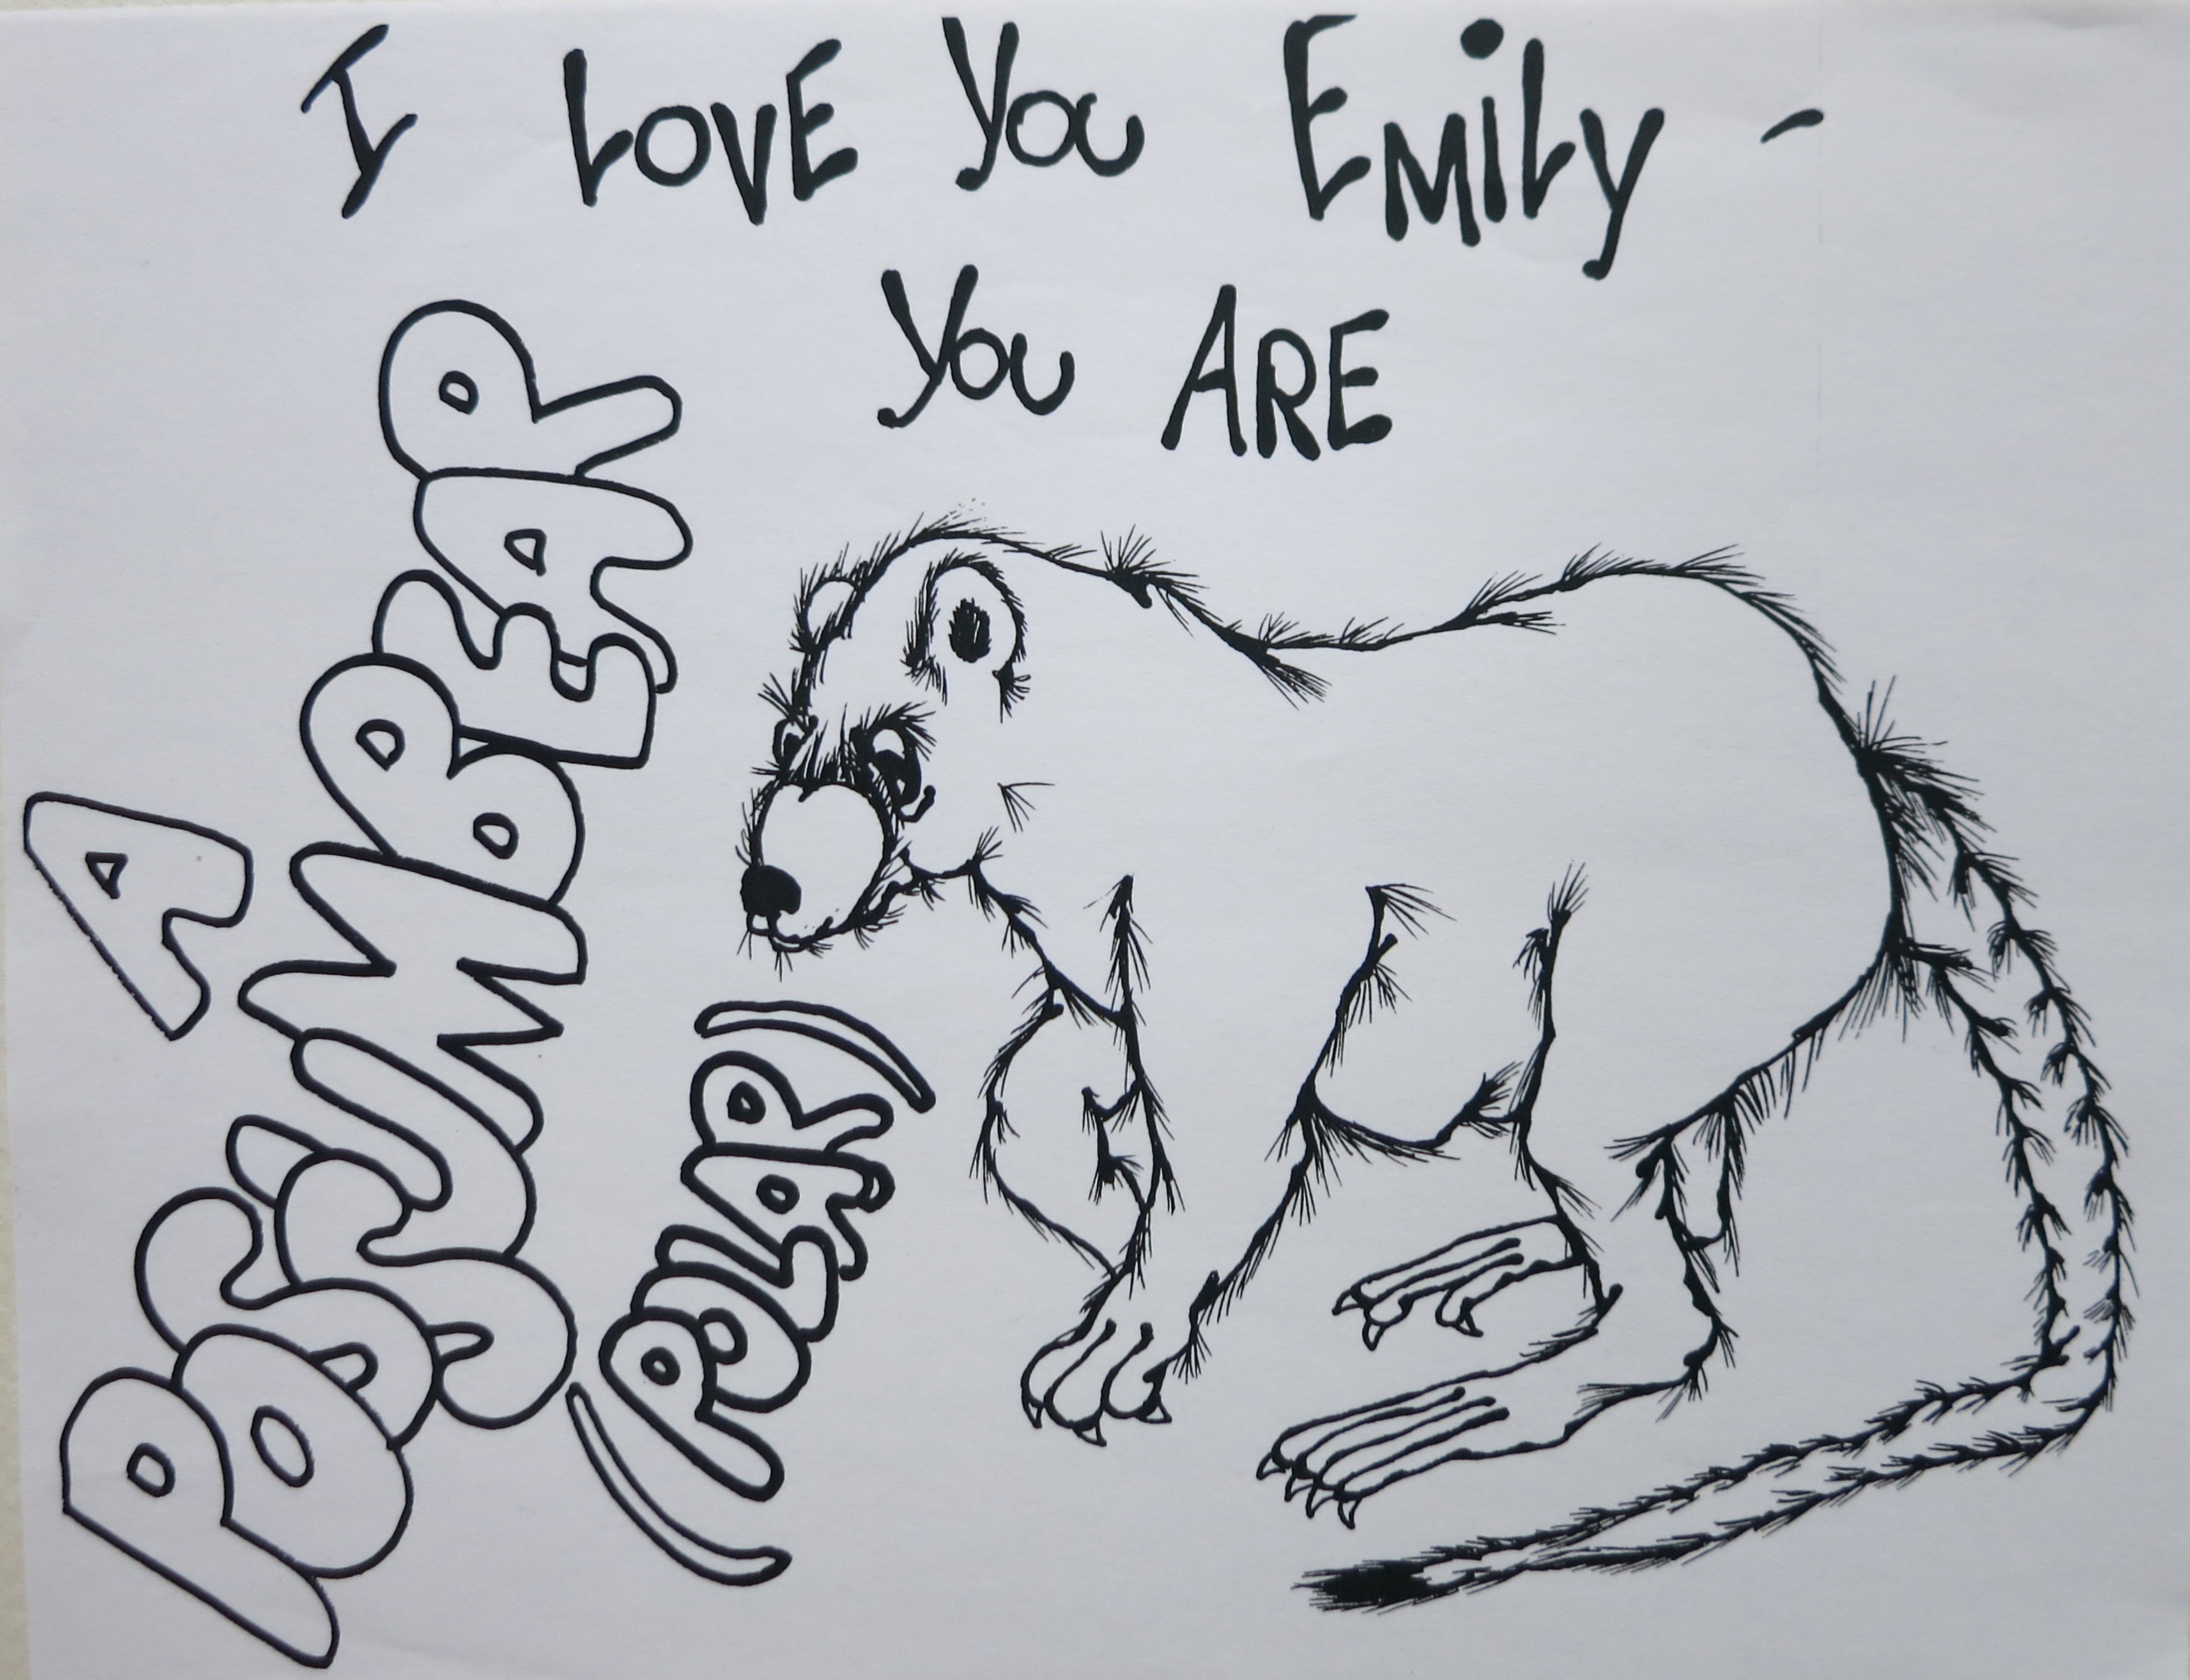 I LOVE YOU EMiLY -
YOU ARE
A
POSSUMBEAR
(POLAR)